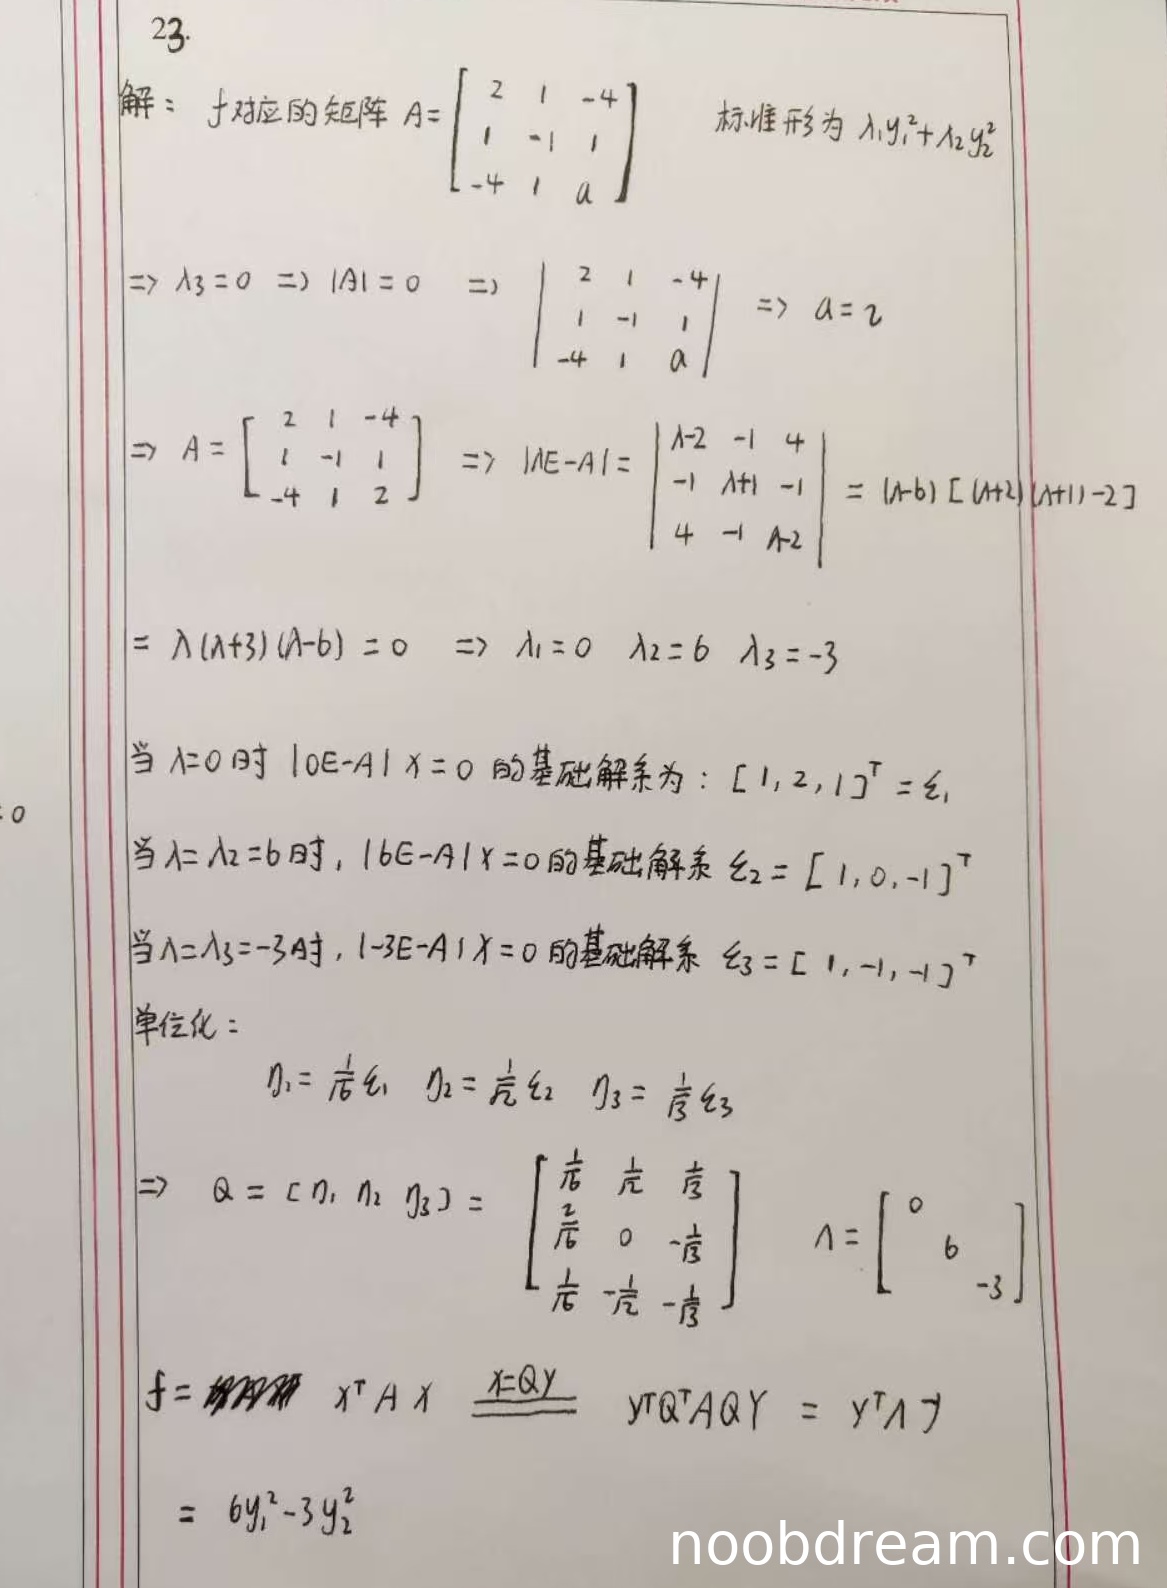 23.
解: f对应的矩阵 A= [2 1 -4; 1 -1 1; -4 1 a] 标准形为 λ₁y₁²+λ₂y₂²
=> λ3=0 => |A|=0 => |2 1 -4; 1 -1 1; -4 1 a| => a=2
=> A= [2 1 -4; 1 -1 1; -4 1 2] => |λE-A|= |λ-2 -1 4; -1 λ+1 -1; 4 -1 λ-2| = (λ-6)[(λ+2)(λ+1)-2]
= λ(λ+3)(λ-6) = 0 => λ₁=0 λ2=6 λ3=-3
当 λ=0时 |0E-A|X=0 的基础解系为: [1,2,1]ᵀ = ξ₁
=0
当λ=λ2=6时, |6E-A|X=0的基础解系 ξ2=[1,0,-1]ᵀ
当λ=λ3=-3时, |-3E-A|X=0的基础解系 ξ3=[1,-1,-1]ᵀ
单位化:
η₁= 1/√6 ξ₁ η2= 1/√2 ξ2 η3= 1/√3 ξ3
=> Q = [η₁ η2 η3] = [1/√6 1/√2 1/√3; 2/√6 0 -1/√3; 1/√6 -1/√2 -1/√3] Λ= [0 6 -3]
f= XᵀAX X=QY YᵀQᵀAQY = YᵀΛY
= 6y₁²-3y₂²
noobdream.com